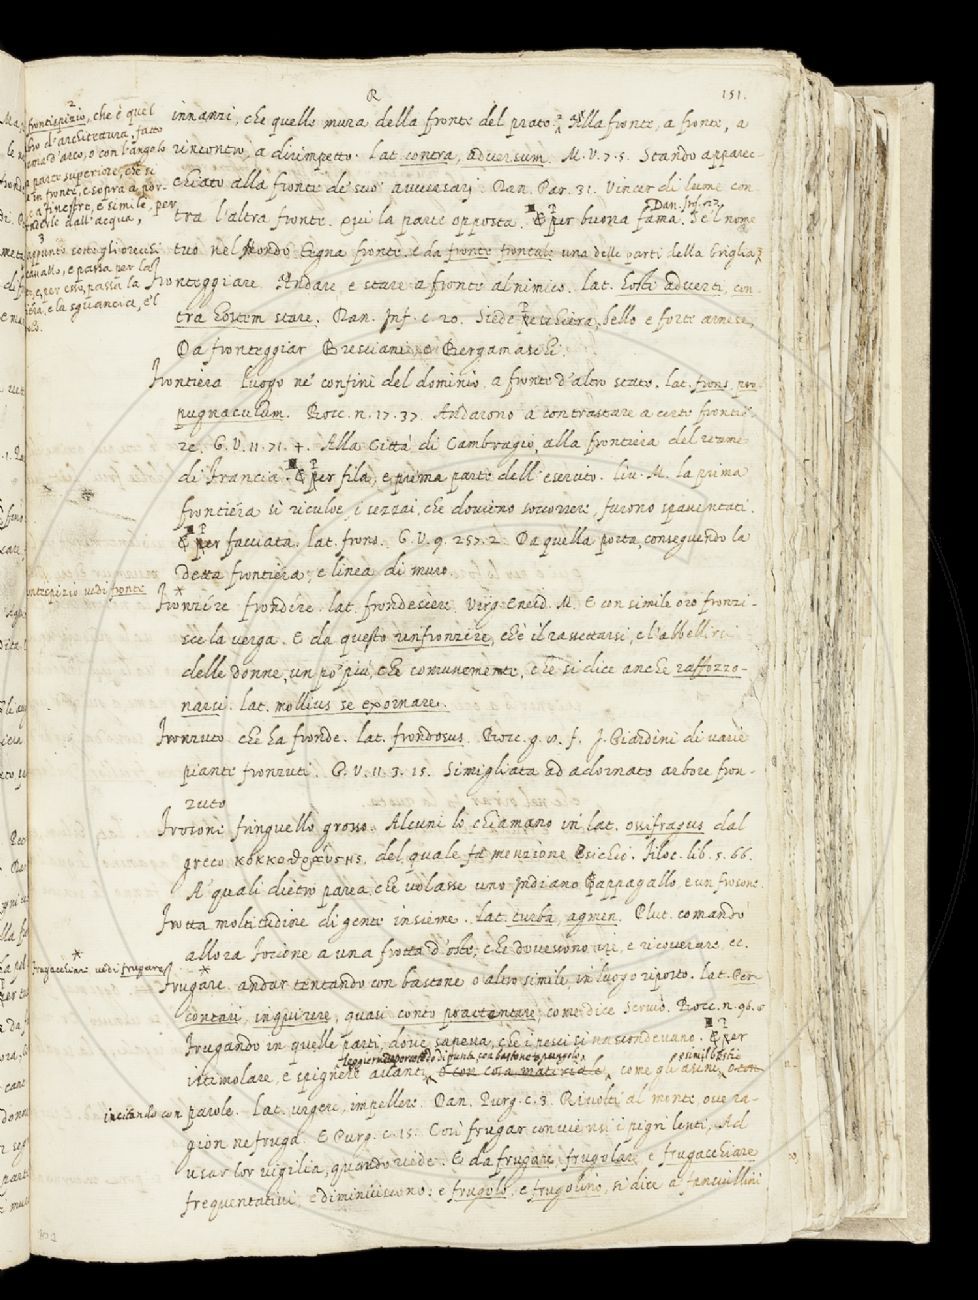 R
151.
innanzi, che quelle mura della fronte del prato. Alla fronte, a fronte, a
rincontro, a dirimpetto. Lat. contra, adversum. M. V. 7. 5. Stando apparec-
chiato alla fronte de' suoi avversarj. Dan. Par. 31. Vincer di lume con
Dan. Inf. c. 27.
tra l'altra fronte. Qui la parte opposta. E per buona fama. Se 'l nome
tuo nel Mondo tegna fronte. e da fronte frontale una delle parti della briglia
Fronteggiare. Andare, e stare a fronte al nimico. lat. hosti adverti, con
tra hostem stare. Dan. Inf. c. 20. Siede Peschiera, bello e forte arnese,
Da fronteggiar Bresciani, e Bergamaschi.
Frontiera luogo ne' confini del dominio, a fronte d'altro stato. lat. frons, pro-
pugnaculum. Bocc. n. 17. 37. Andarono a contrastare a certe frontie-
re. G. V. 11. 71. 4. Alla Città di Cambragio, alla frontiera del reame
di Francia. E per fila, e prima parte dell'esercito. liv. M. la prima
frontiera si riculoe, i sezzai, che dovieno soccorrere, furono spaventati.
E per facciata. lat. frons. G. V. 9. 257. 2. Da quella porta, conseguendo la
detta frontiera, e linea di muro.
Fronzire frondire. lat. frondescere. Virg. Eneid. M. E con simile oro fronzi-
sce la verga. E da questo rinfronzire, ch'è il rassettarsi, e l'abbellirsi
delle donne, un po' più, che comunemente, e che si dice anche raffazzo-
narsi. lat. mollius se exornare.
Fronzuto che ha fronde. lat. frondosus. Bocc. g. 9. f. J. Giardini di varie
piante fronzuti. G. V. 11. 3. 15. Simigliata ad adornato arbore fron-
zuto
Frosone fringuello grosso. Alcuni lo chiamano in lat. ossifragus dal
greco κοκκοθραύστης, del quale fa menzione Esichio. Filoc. lib. 5. 66.
A' quali dietro parea, che volasse uno Indiano Pappagallo, e un frosone.
Frotta moltitudine di gente insieme. Lat. turba, agmen. Plut. comandò
allora Focione a una frotta d'oste, che dovessono iri, e ricoverare, ec.
Frugare andar tentando con bastone o altro simile, in luogo riposto. Lat. Per-
contari, inquirere, quasi conto practentare, come dice Servio. Bocc. n. 96. 6
Frugando in quelle parti, dove sapeva, che i pesci si nascondevano. E per
leggiermente percotendo di punta, con bastone o pungolo,
e simil bestie
istimolare, e spignere avanti, o con cosa materiale, come gli asini,
incitando con parole. Lat. urgere, impellere. Dan. Purg. c. 3. Rivolti al monte ove ra-
gion ne fruga. E Purg. c. 15. Così frugar conviensi i pigri lenti, Ad
usar lor vigilia, quando riede. E da frugare frugolare e frugacchiare
frequentativi, e diminutivo: e frugolo, e frugolino, si dice a fanciullini
frontispizio, che è quel
d'architettura, fatto
d'arco, o con l'angolo
parte superiore, che si
in fronte, e sopra a por-
e a finestre, e simile, per
dall'acqua,
appunto sotto gli orecchi
cavallo, e passa per la
e, per esso, passa la
e la sguancia, e 'l
frontispizio vedi fronte
frugacchiare vedi frugare